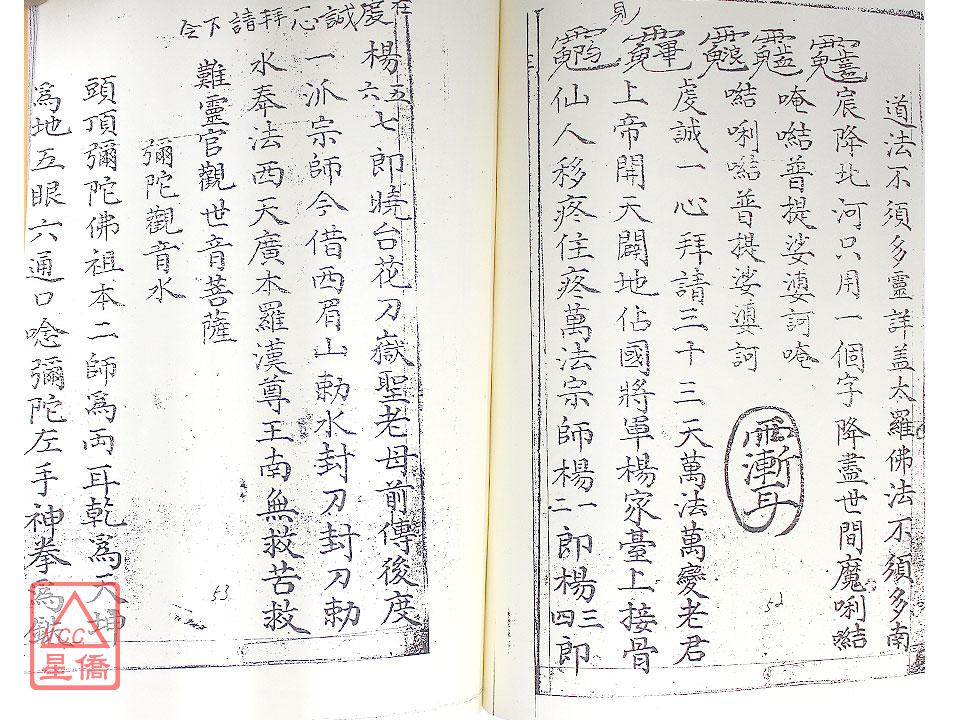 道法不須多靈詳盖太羅佛法不須多南
宸降北河只用一個字降盡世間魔唎㗌
唵㗌普提娑婆訶唵
㗌唎㗌普提娑婆訶
虔誠一心拜請三十三天萬法萬變老君
上帝開天闢地佔國將軍楊家臺上接骨
仙人移疼住疼萬法宗師楊一二郎楊三四郎
見
52
在虔誠心拜請下令
楊五六七郎曉台花刀嶽聖老母前傳後度
一派宗師今借西眉山勅水封刀封刀勅
水奉法西天廣本羅漢尊王南無救苦救
難靈官觀世音菩薩
彌陀觀音水
頭頂彌陀佛祖本二師為両耳乾為天坤
為地五眼六通口唸彌陀左手神拳為
53
VCC
星僑